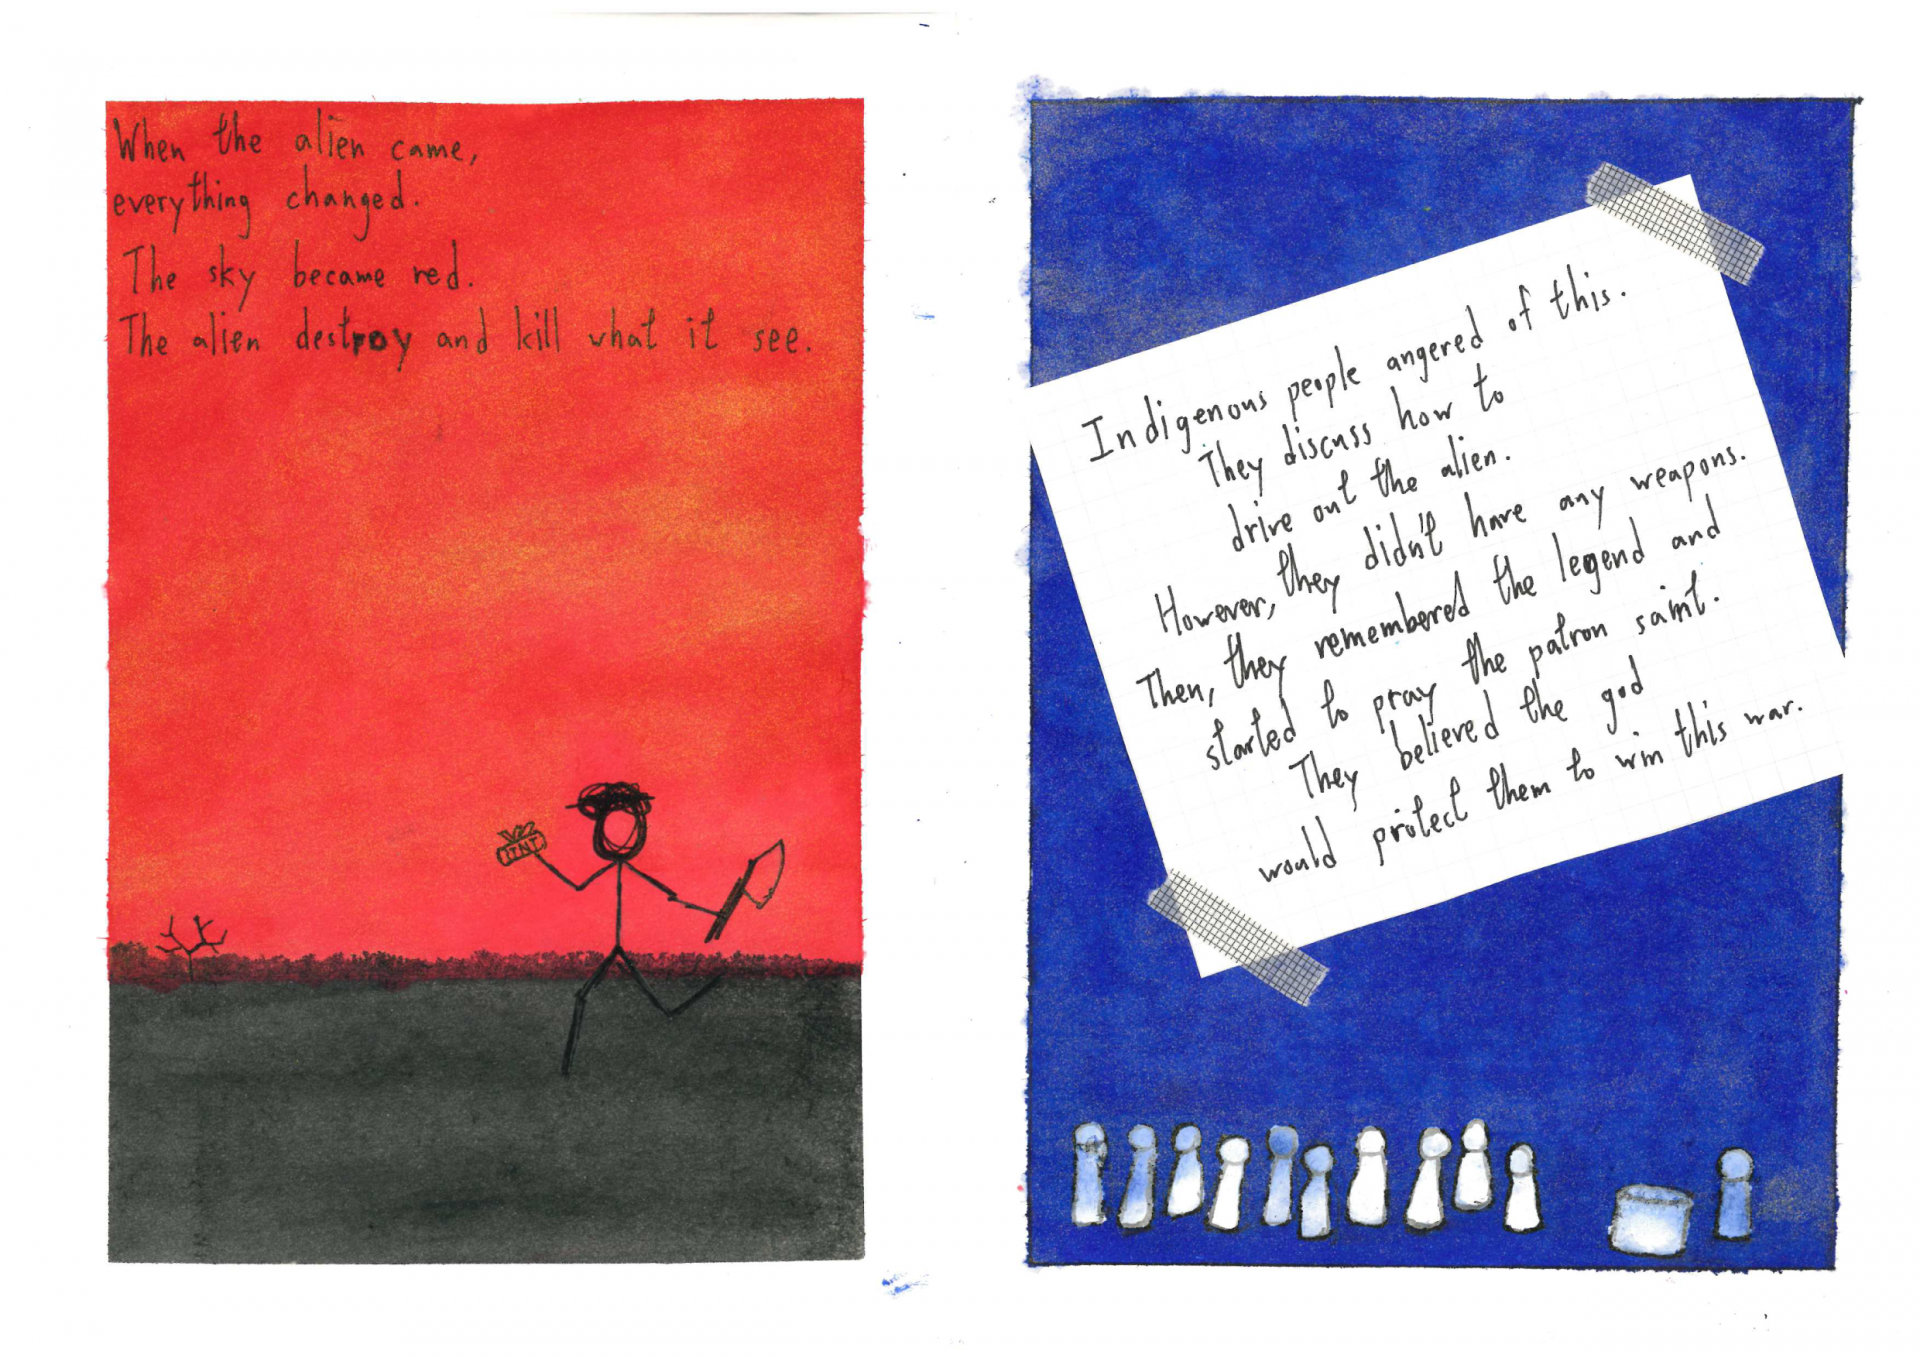 When the alien came,
everything changed.
The sky became red.
The alien destroy and kill what it see.
TNT
Indigenous people angered of this.
They discuss how to
drive out the alien.
However, they didn't have any weapons.
Then, they remembered the legend and
started to pray the patron saint.
They believed the god
would protect them to win this war.